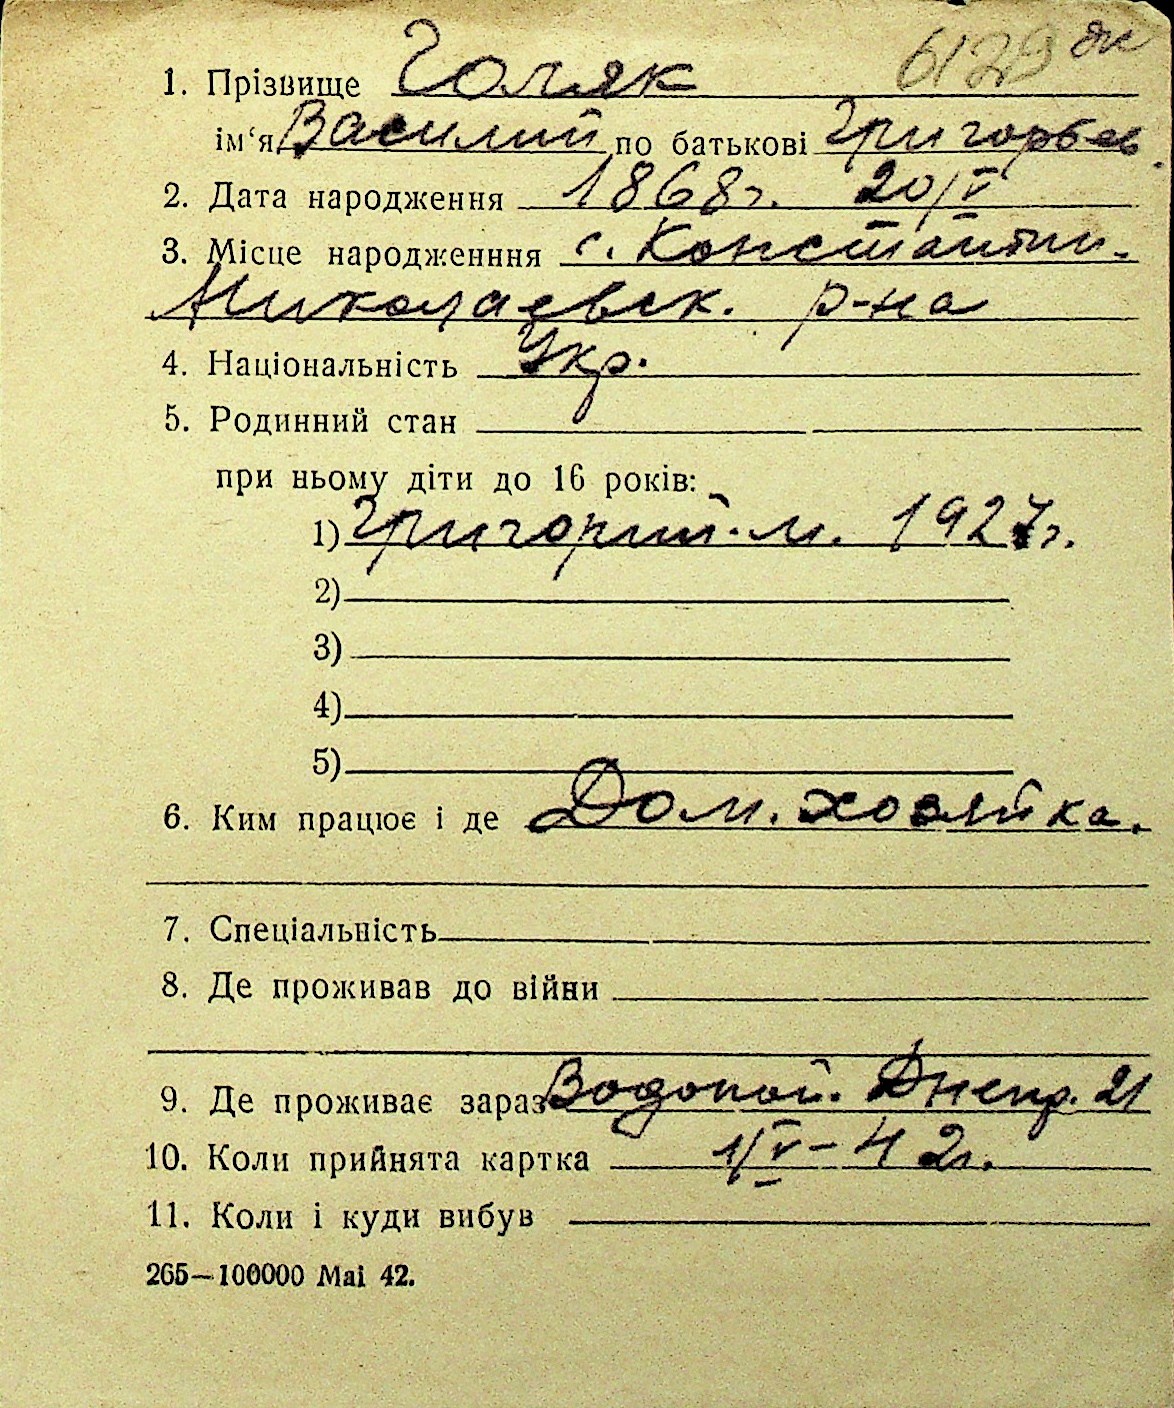 6129 дк
1. Прізвище Голяк
ім‘я Василий по батькові Григорьев.
2. Дата народження 1868г. 20/V
3. Місце народженння с. Константин.
Николаевск. р-на
4. Національність Укр.
5. Родинний стан
при ньому діти до 16 років:
1) Григорий. м. 1927г.
2)
3)
4)
5)
6. Ким працює і де Дом. хозяйка.
7. Спеціальність
8. Де проживав до війни
9. Де проживає зараз Водопой. Днепр. 21
10. Коли прийнята картка 1/V-42г.
11. Коли і куди вибув
265—100000 Маі 42.